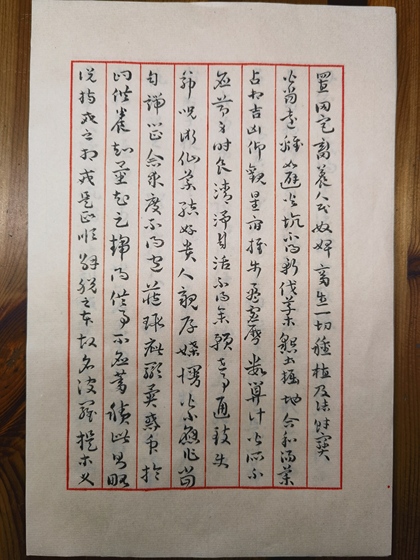 置田宅畜養人民奴婢畜生一切種植及諸財寶
皆當遠離如避火坑不得斬伐草木墾土掘地合和湯藥
占相吉凶仰觀星宿推步盈虛曆數算計皆所不
應節身時食清淨自活不得參預世事通致使
命呪術仙藥結好貴人親厚媟嫚皆不應作當
自端心正念求度不得包藏瑕疵顯異惑眾於
四供養知量知足趣得供事不應蓄積此則略
說持戒之相戒是正順解脫之本故名波羅提木叉